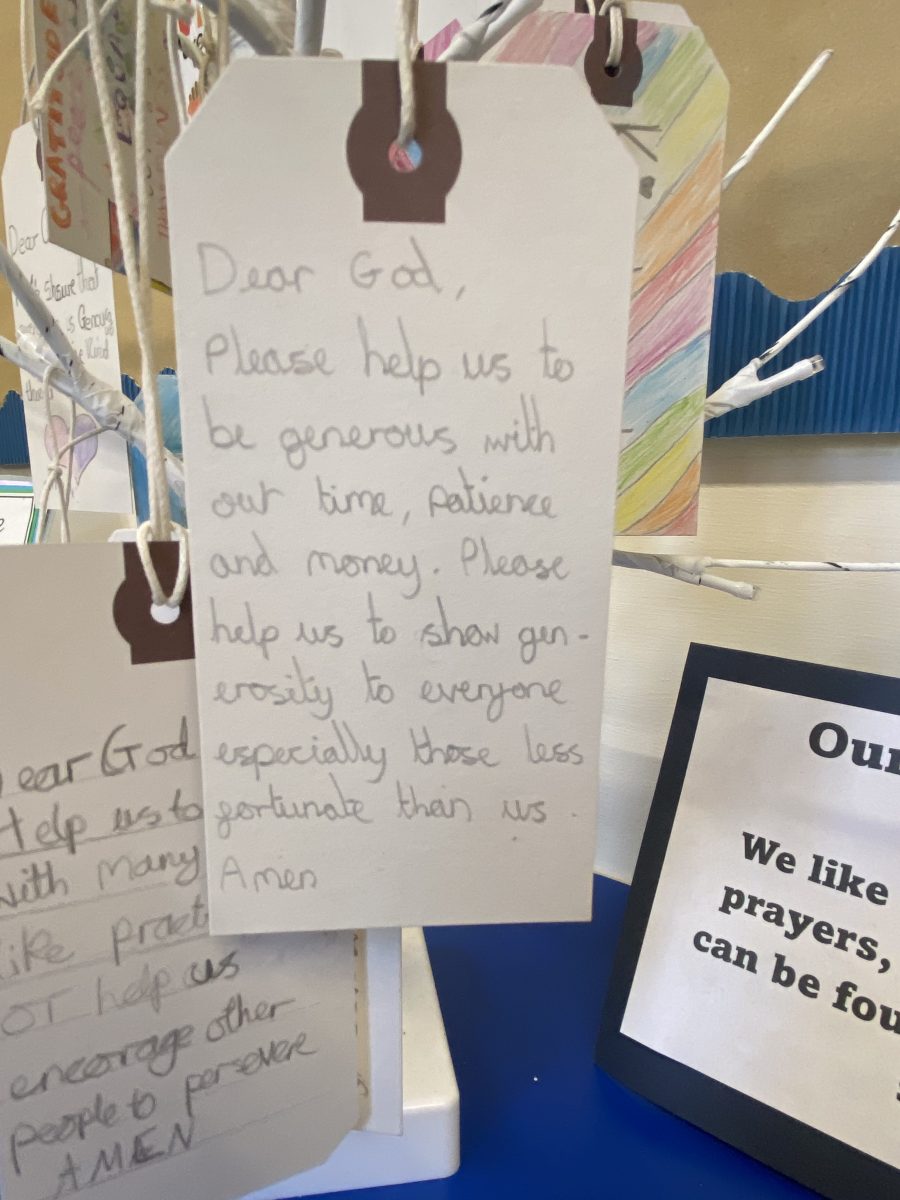 Dear God,
Please help us to
be generous with
our time, patience
and money. Please
help us to show gen-
erosity to everyone
especially those less
fortunate than us.
Amen
ear God
Help us to
with many
like pract
or help us
encourage other
people to persevere
AMEN
Our
We like
prayers,
can be fou
GRATITUDE
Dear
shsure that
is Generous
Kind